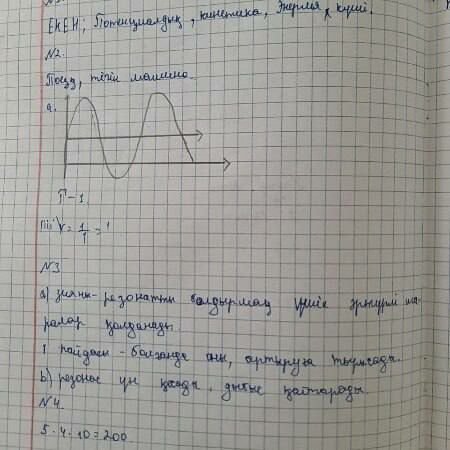 ЕКЕН; Потенциалдық, кинетика, Энергия, күші.
N2.
Поезд, тігін машина.
a.
T-1.
III V= 1/1 = 1
N3
a) зияны-резонатты болдырмау үшін әртүрлі ша-
ралар қолданады.
1 пайдасы - болғанда оны, арттыруға тырысады.
b) резонас үн қосады, дыбыс қайтарады.
N4.
5·4·10=200